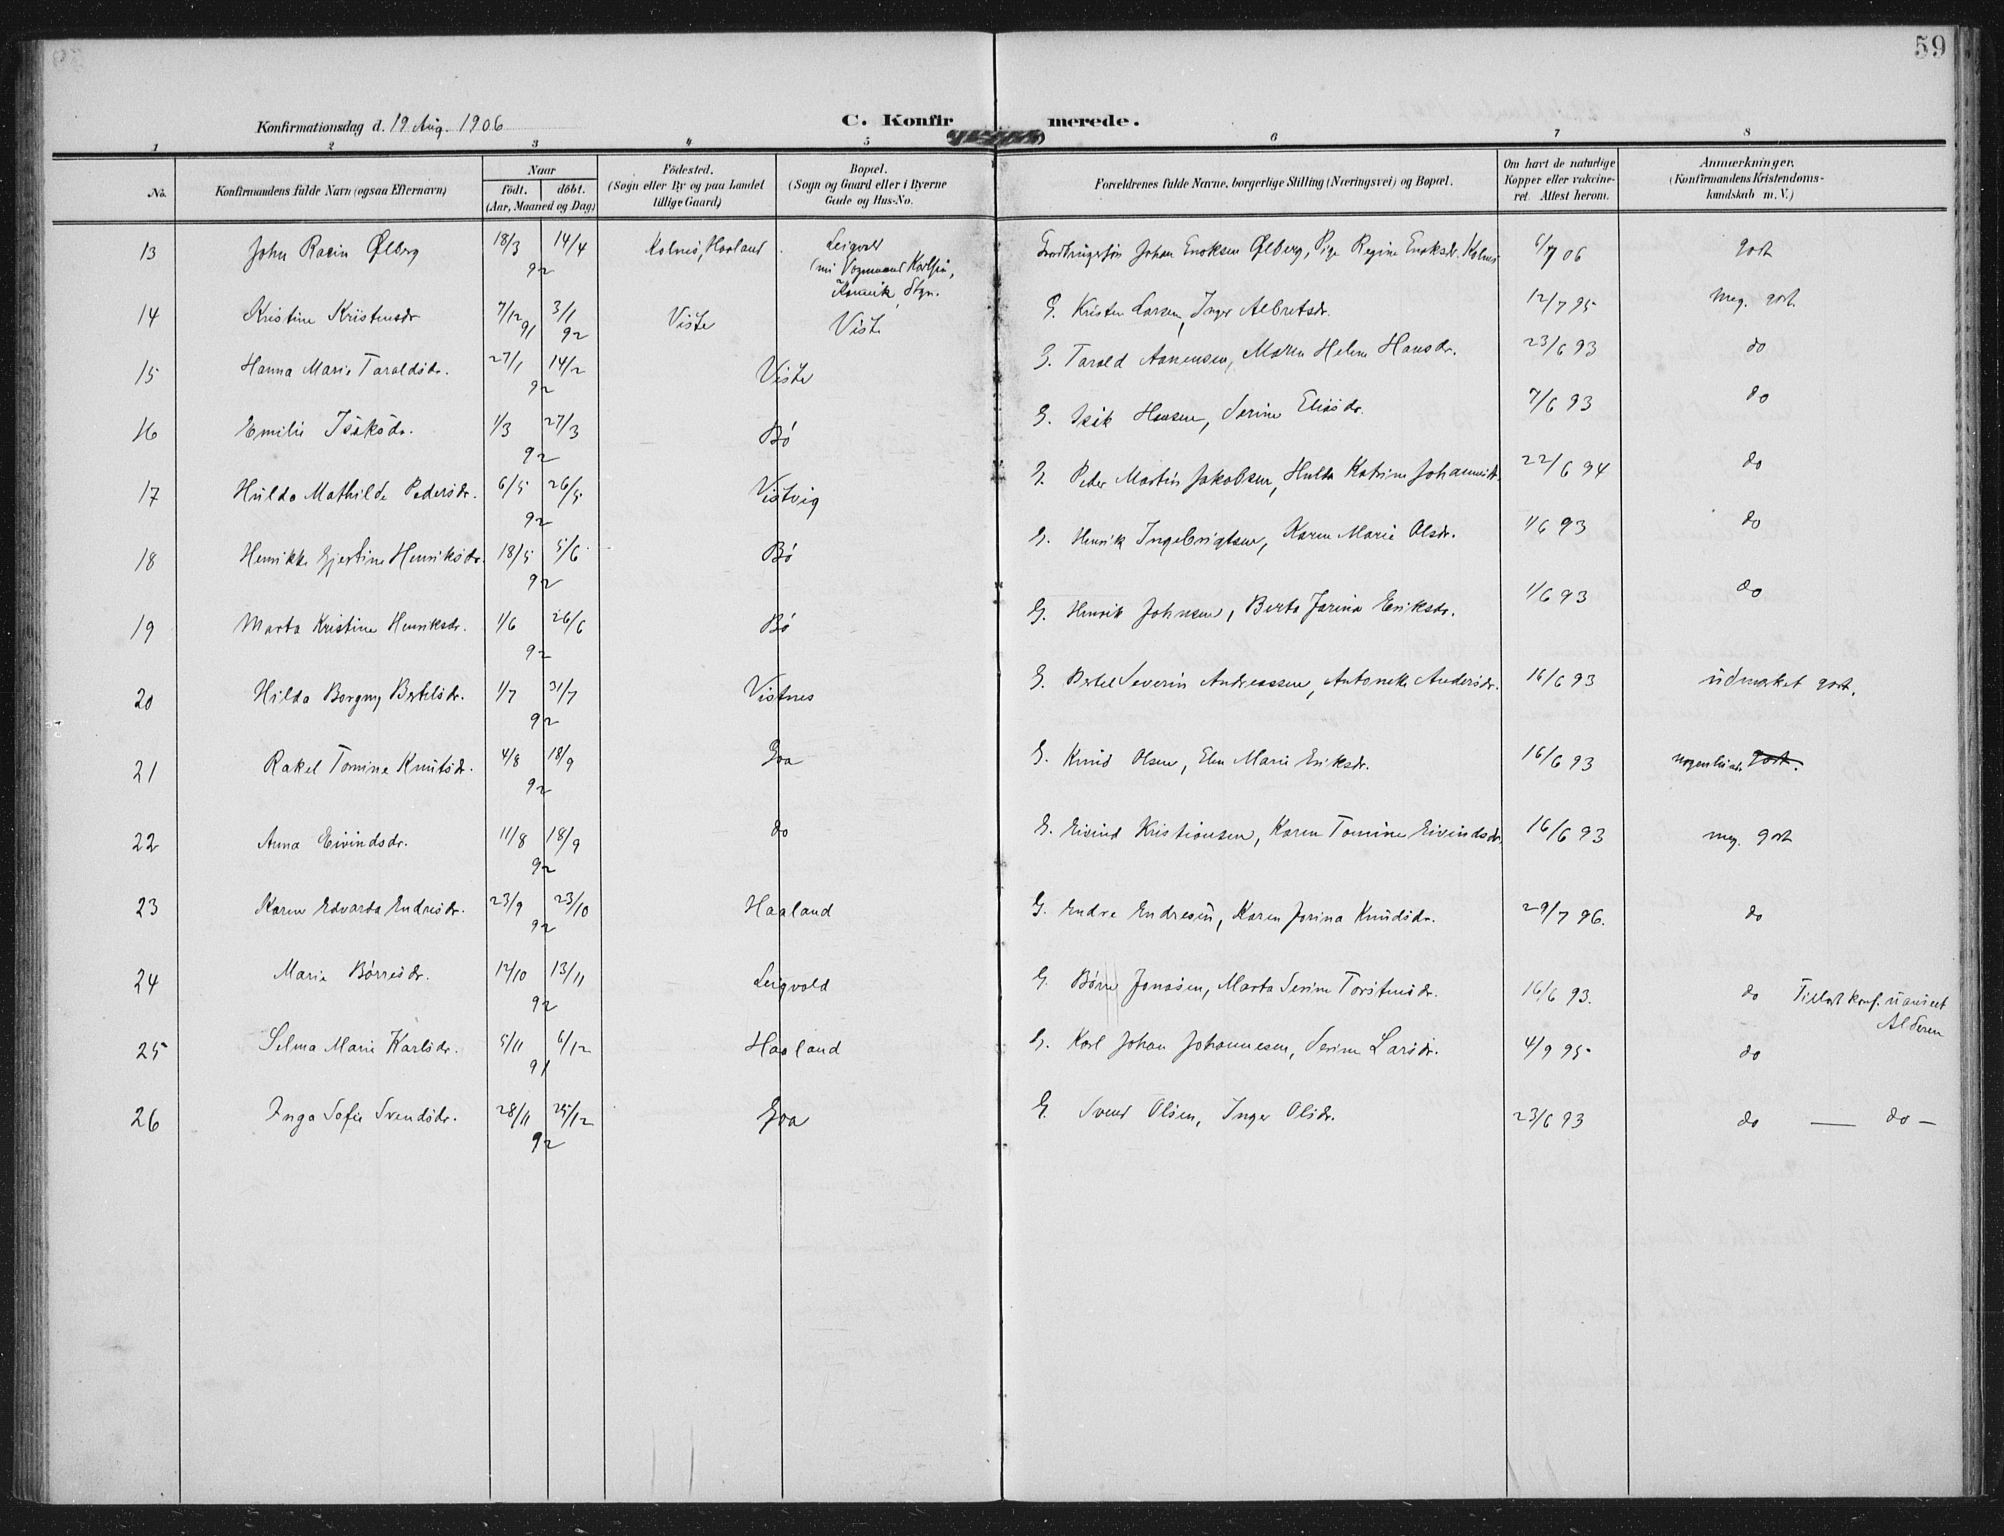 59
Konfirmationsdag d. 19 Aug. 1906
C. Konfirmerede.
1 2 3 4 5 6 7 8
No. Konfirmandens fulde Navn (ogsaa Efternavn) Naar født. døbt. (Aar, Maaned og Dag) Fødested. (Sogn eller By og paa Landet tillige Gaard) Bopæl. (Sogn og Gaard eller i Byerne Gade og Hus-No. Forældrenes fulde Navne, borgerlige Stilling (Næringsvei) og Bopæl. Om havt de naturlige Kopper eller vakcineret. Attest herom. Anmærkninger. (Konfirmandens Kristendomskundskab m. V.)
13 John Rasin Ølberg 18/3 14/4 92 Kolnes, Haaland Leigvold Johan Enoksen Ølberg, Pige Regine Enoksdr. Kolnes 6/7 06 godt
14 Kristine Kristensdr 7/12 91 3/1 92 Viste Viste G. Kristen Larsen, Inger Albretsdr. 12/7 95 meg. godt
15 Hanna Marie Taraldsdr. 27/1 14/2 92 Viste G. Tarald Aanensen, Maren Helene Hansdr. 23/6 93 do
16 Emilie Isaksdr. 1/3 27/3 92 Bø G. Isak Hansen, Serine Eliasdr. 7/6 93 do
17 Hulda Mathilde Pedersdr. 6/5 26/5 92 Vistvig G. Peder Martin Jakobsen, Hulda Katrine Johannesdr. 22/6 94 do
18 Henrikke Gjertine Henriksdr. 18/5 5/6 92 Bø G. Henrik Ingebrigtsen, Karen Marie Olsdr. 1/6 93 do
19 Marta Kristine Henriksdr. 1/6 26/6 92 Bø G. Henrik Johnsen, Berta Jarina Eriksdr. 1/6 93 do
20 Hilda Borgny Bertelsdr. 1/7 31/7 92 Vistnes G. Bertel Severin Andreassen, Antonette Andersdr. 16/6 93 udmerket godt.
21 Rakel Tomine Knutsdr. 4/8 18/9 92 Goa G. Knud Olsen, Elen Marie Eriksdr. 16/6 93 nogenlunde godt.
22 Anna Eivindsdr. 11/8 18/9 92 do G. Eivind Kristiansen, Karen Tomine Eivindsdr. 16/6 93 meg. godt
23 Karen Edvarda Endresdr. 23/9 23/10 92 Haaland G. Endre Endresen, Karen Jorina Knudsdr. 29/7 96. do
24 Marie Børresdr. 12/10 13/11 92 Leigvold G. Børre Jonasen, Marta Serine Torstensdr. 16/6 93. do Tillat konf. uanseet Alderen
25 Selma Marie Karlsdr. 5/11 6/12 91 Haaland G. Karl Johan Johannesen, Serine Larsdr. 4/9 95 do
26 Inga Sofie Svendsdr. 28/11 25/12 92 Goa G. Svend Olsen, Inger Olsdr. 23/6 93 do — do —